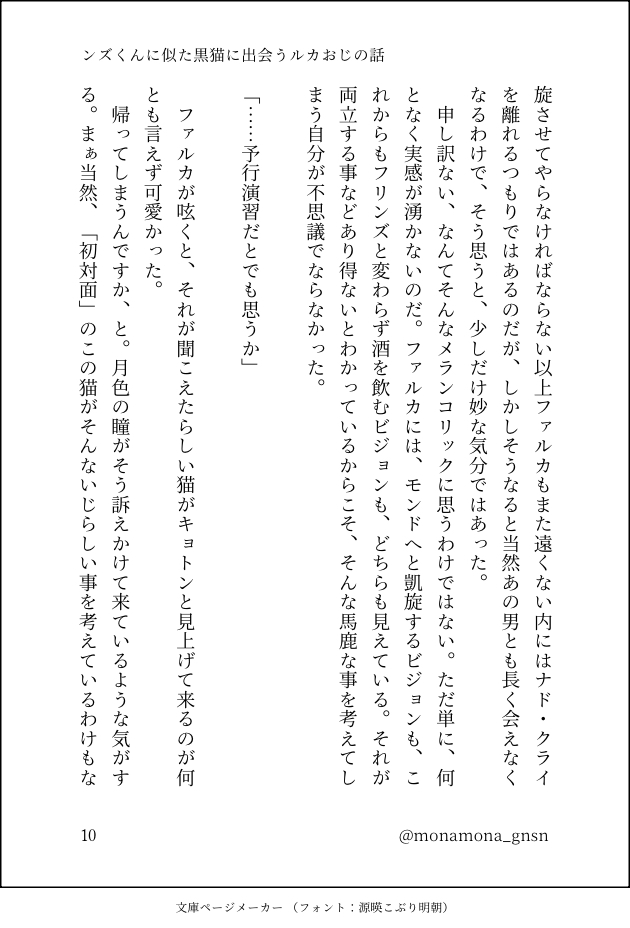 ンズくんに似た黒猫に出会うルカおじの話
旋させてやらなければならない以上ファルカもまた遠くない内にはナド・クライ
を離れるつもりではあるのだが、しかしそうなると当然あの男とも長く会えなく
なるわけで、そう思うと、少しだけ妙な気分ではあった。
申し訳ない、なんてそんなメランコリックに思うわけではない。ただ単に、何
となく実感が湧かないのだ。ファルカには、モンドへと凱旋するビジョンも、こ
れからもフリンズと変わらず酒を飲むビジョンも、どちらも見えている。それが
両立する事などあり得ないとわかっているからこそ、そんな馬鹿な事を考えてし
まう自分が不思議でならなかった。
「……予行演習だとでも思うか」
ファルカが呟くと、それが聞こえたらしい猫がキョトンと見上げて来るのが何
とも言えず可愛かった。
帰ってしまうんですか、と。月色の瞳がそう訴えかけて来ているような気がす
る。まぁ当然、「初対面」のこの猫がそんないじらしい事を考えているわけもな
10
@monamona_gnsn
文庫ページメーカー（フォント：源暎こぶり明朝）